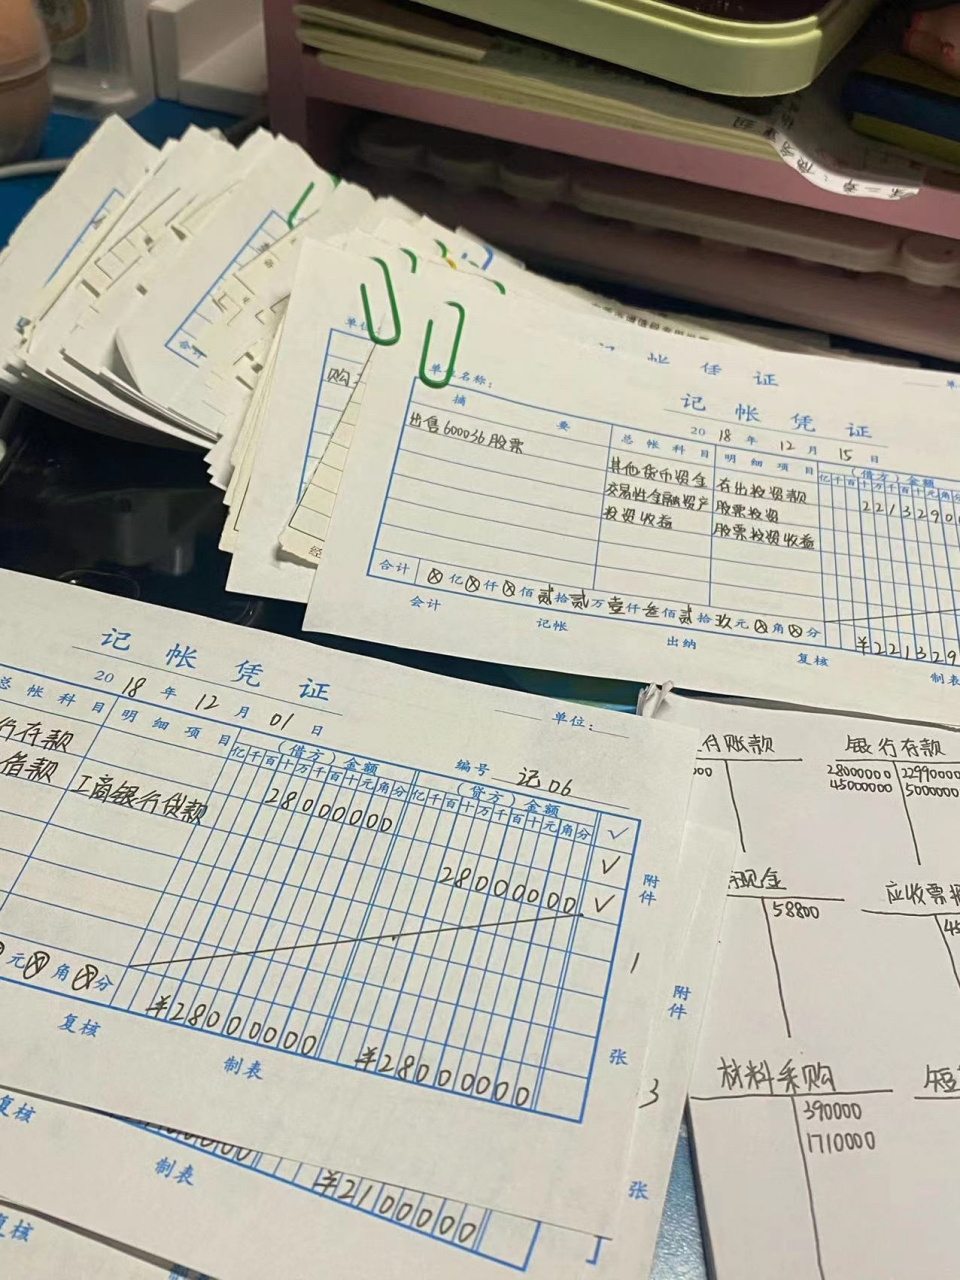 记 帐 凭 证
单位名称:
记 帐 凭 证
2018 年 12 月 15 日
摘 要
总帐科目 明细项目 (借方)金额
亿千百十万千百十元角分
出售600036股票
其他货币资金 存出投资款 2213290
交易性金融资产 股票投资
投资收益 股票投资收益
合计 ⊗亿⊗仟⊗佰贰拾贰万壹仟叁佰贰拾玖元⊗角⊗分
¥221329
会计 记帐 出纳 复核 制表
购
记 帐 凭 证
2018 年 12 月 01 日
单位:
编号 记06
总帐科目 明细项目 (借方)金额 (贷方)金额
亿千百十万千百十元角分 亿千百十万千百十元角分 ✓
行存款 28000000 ✓
借款 工商银行贷款 28000000 ✓
附件 1 张
元⊗角⊗分 ¥28000000 ¥28000000
复核 制表
附件 3 张
复核 制表
¥2100000
复核
银行存款
28000000 22990000
45000000 5000000
现金
58800
应收票
材料采购
390000
1710000
短